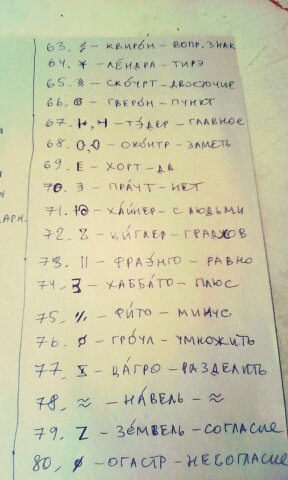 63. - КВИРО́Н - ВОПР. ЗНАК
64. Ж - ЛЕ́НДРА - ТИРЭ
65. - СКО́УРТ - ДВОЕТОЧИЕ
66. - ГВЕРО́Н - ПУНКТ
67. - ТЭ́ДЕР - ГЛАВНОЕ
68. O,O - ОКО́НТР - ЗАМЕТЬ
69. E - ХОРТ - ДА
70. Э - ПРА́ЧТ - НЕТ
ДАРН.
71. Ю - ХА́ЙНЕР - С ЛЮДЬМИ
72. - ЦИ́ГЛЕР -
73. || - ФРАЭ́НГО - РАВНО
74. - ХАББА́ТО - ПЛЮС
75. ٪ - ФИ́ТО - МИНУС
76. ø - ГРО́УЛ - УМНОЖИТЬ
77. - ЦА́ГРО - РАЗДЕЛИТЬ
78. ≈ - НА́ВЕЛЬ - ≈
79. Z - ЗЕ́МВЕЛЬ - СОГЛАСИЕ
80. ø - ОГАСТР - НЕСОГЛАСИЕ